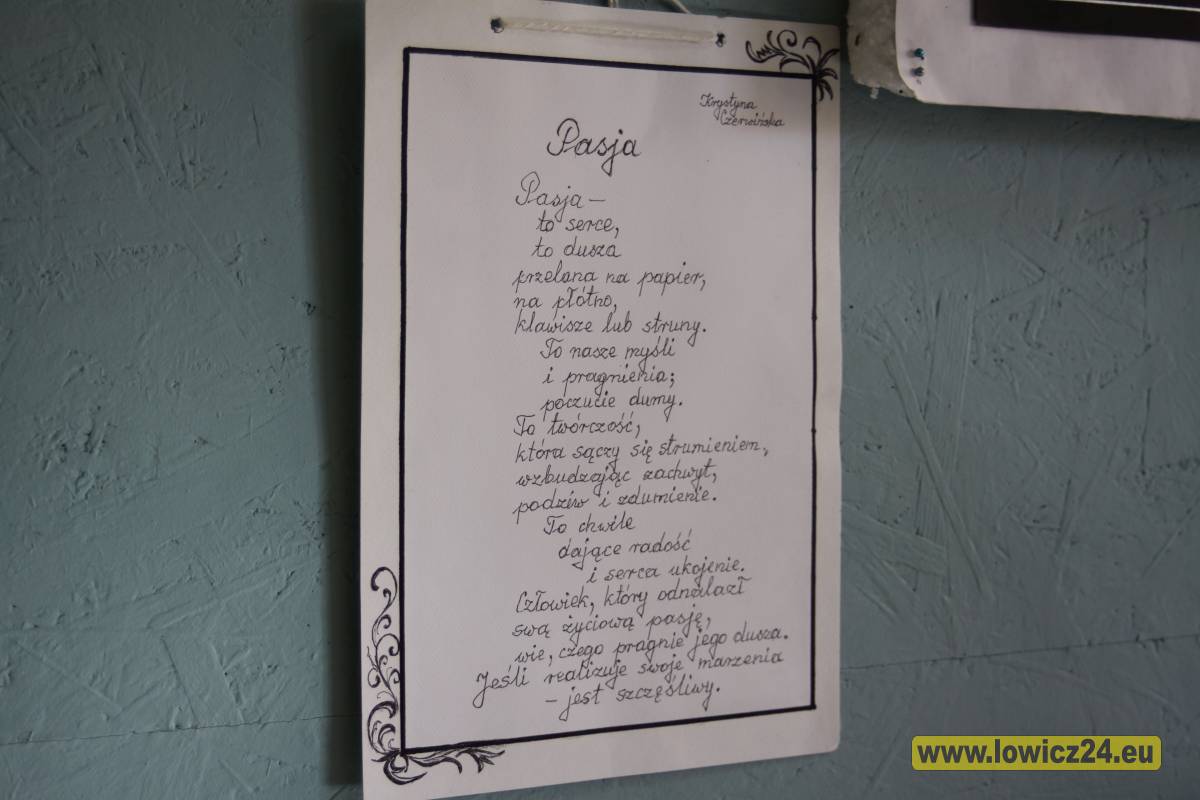 Krystyna
Czerwińska
Pasja
Pasja –
to serce,
to dusza
przelana na papier,
na płótno,
klawisze lub struny.
To nasze myśli
i pragnienia;
poczucie dumy.
To twórczość,
która sączy się strumieniem,
wzbudzając zachwyt,
podziw i zdumienie.
To chwile
dające radość
i serca ukojenie.
Człowiek, który odnalazł
swą życiową pasję,
wie, czego pragnie jego dusza.
Jeśli realizuje swoje marzenia
– jest szczęśliwy.
www.lowicz24.eu